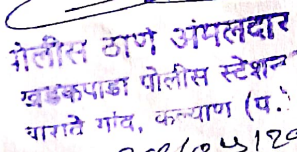 पोलीस ठाणे अंमलदार
खडकपाडा पोलीस स्टेशन
बारावे गांव, कल्याण (प.)